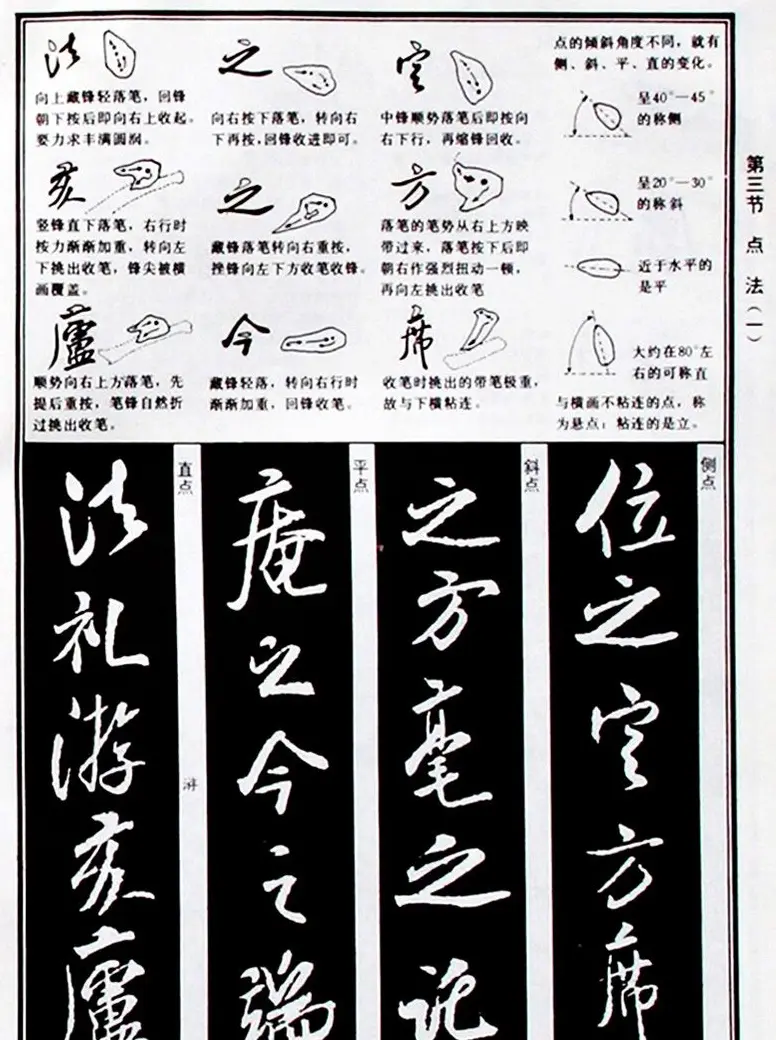 第三节 点法（一）
法
向上藏锋轻落笔，回锋
朝下按后即向右上收起。
要力求丰满圆润。
之
向右按下落笔，转向右
下再按，回锋收进即可。
定
中锋顺势落笔后即按向
右下行，再缩锋回收。
点的倾斜角度不同，就有
侧、斜、平、直的变化。
呈40°—45°
的称侧
呈20°—30°
的称斜
近于水平的
是平
大约在80°左
右的可称直
与横画不粘连的点，称
为悬点；粘连的是立。
亥
竖锋直下落笔，右行时
按力渐渐加重，转向左
下挑出收笔，锋尖被横
画覆盖。
之
藏锋落笔转向右重按，
挫锋向左下方收笔收锋。
方
落笔的笔势从右上方映
带过来，落笔按下后即
朝右作强烈扭动一顿，
再向左挑出收笔
廬
顺势向右上方落笔，先
提后重按，笔锋自然折
过挑出收笔。
今
藏锋轻落，转向右行时
渐渐加重，回锋收笔。
席
收笔时挑出的带笔极重，
故与下横粘连。
侧点
位之定方席
斜点
之方毫之记
平点
庵之今之端
直点
法礼游亥廬
游